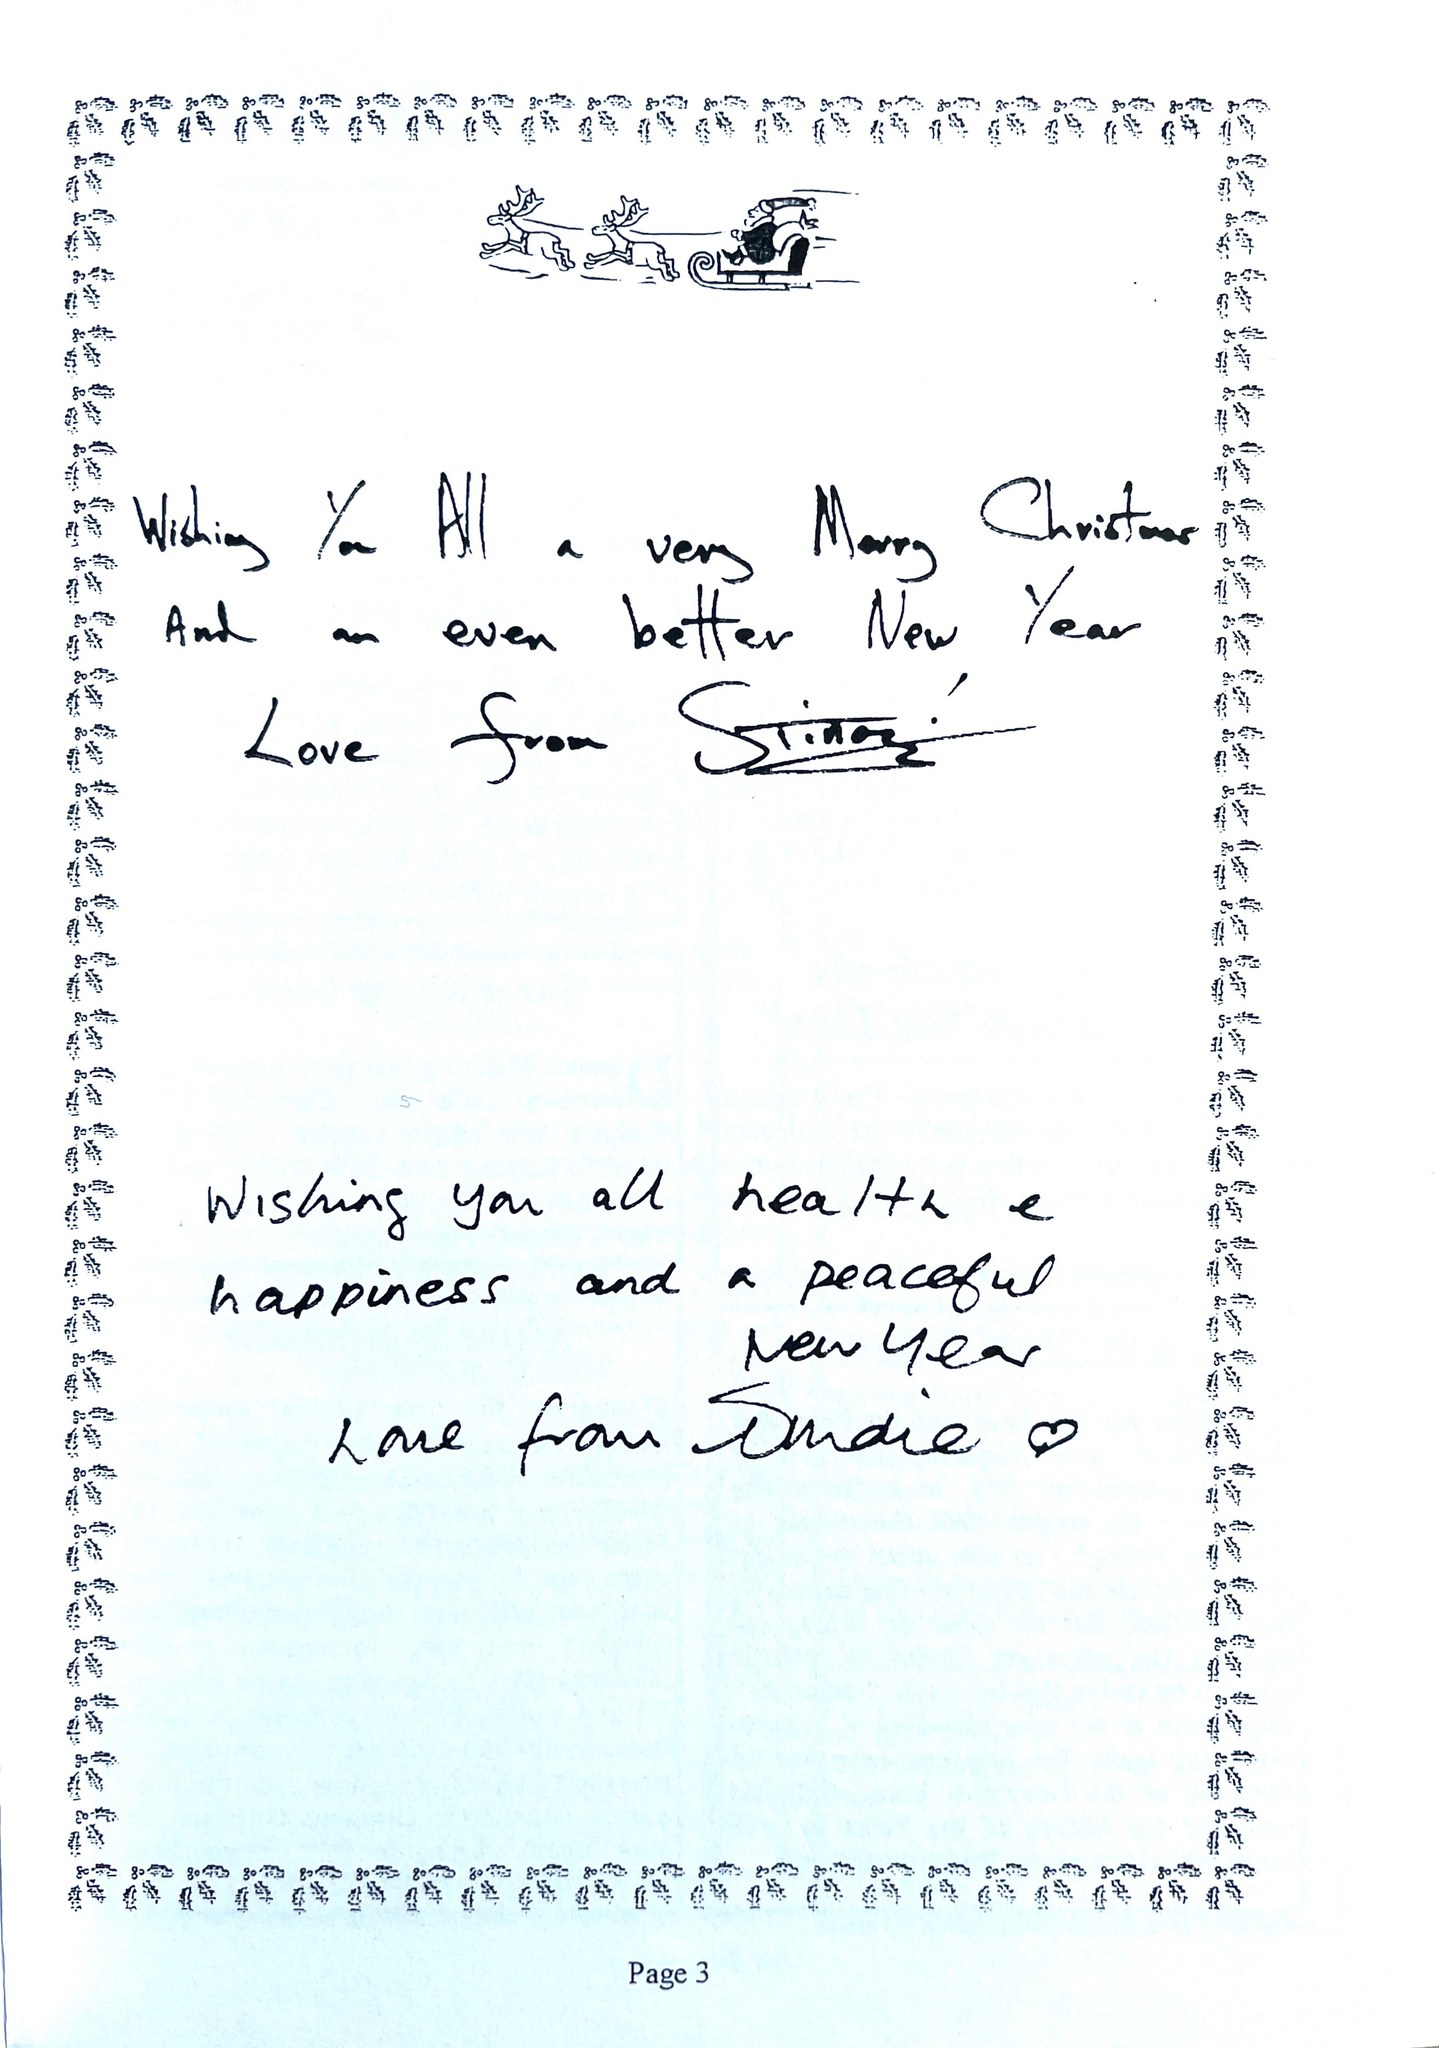 Wishing You All a very Merry Christmas
And an even better New Year
Love from
Wishing you all health &
happiness and a peaceful
New Year
Love from
Page 3